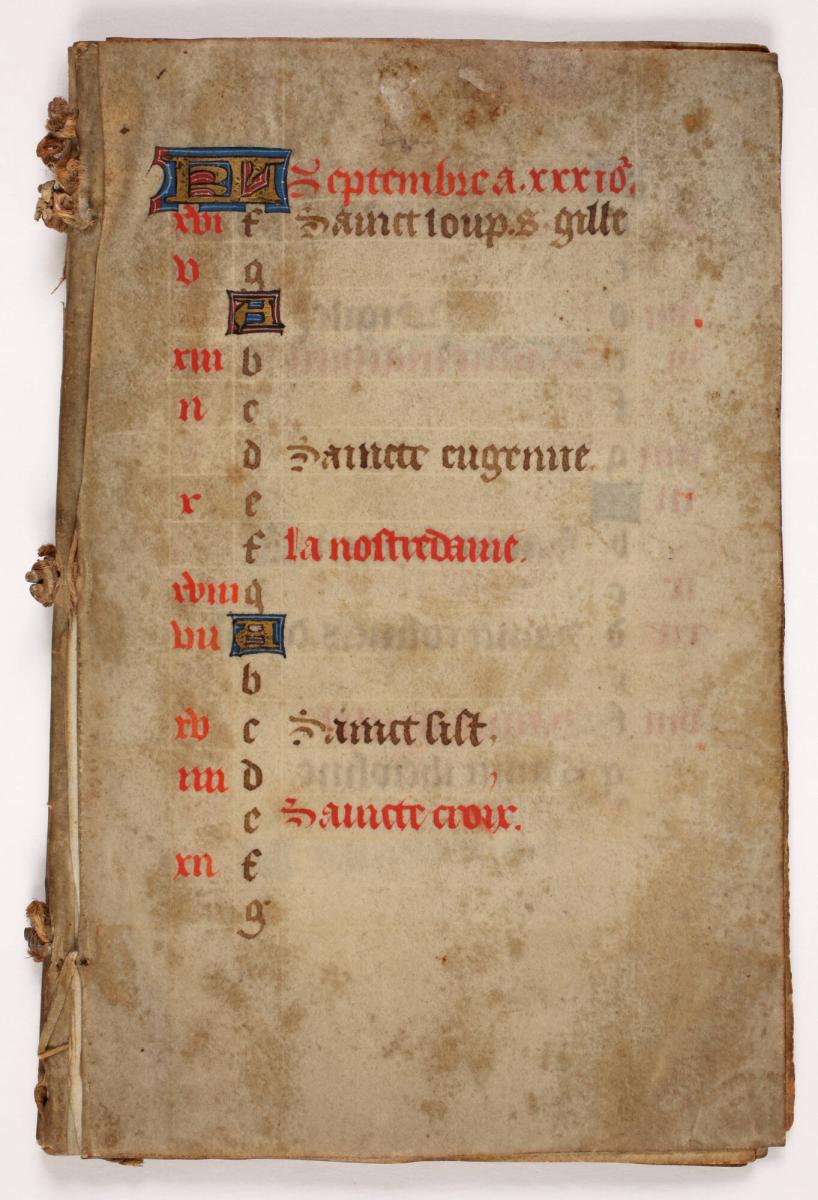 KL Septembre a .xxx io².
xvi f Sainct loup. s. gille
v g
A
xiii b
ii c
d Saincte eugenne.
x e
f la nostredame.
xviii g
vii A
b
xv c Sainct sist,
iiii d
e Saincte croix.
xii f
g